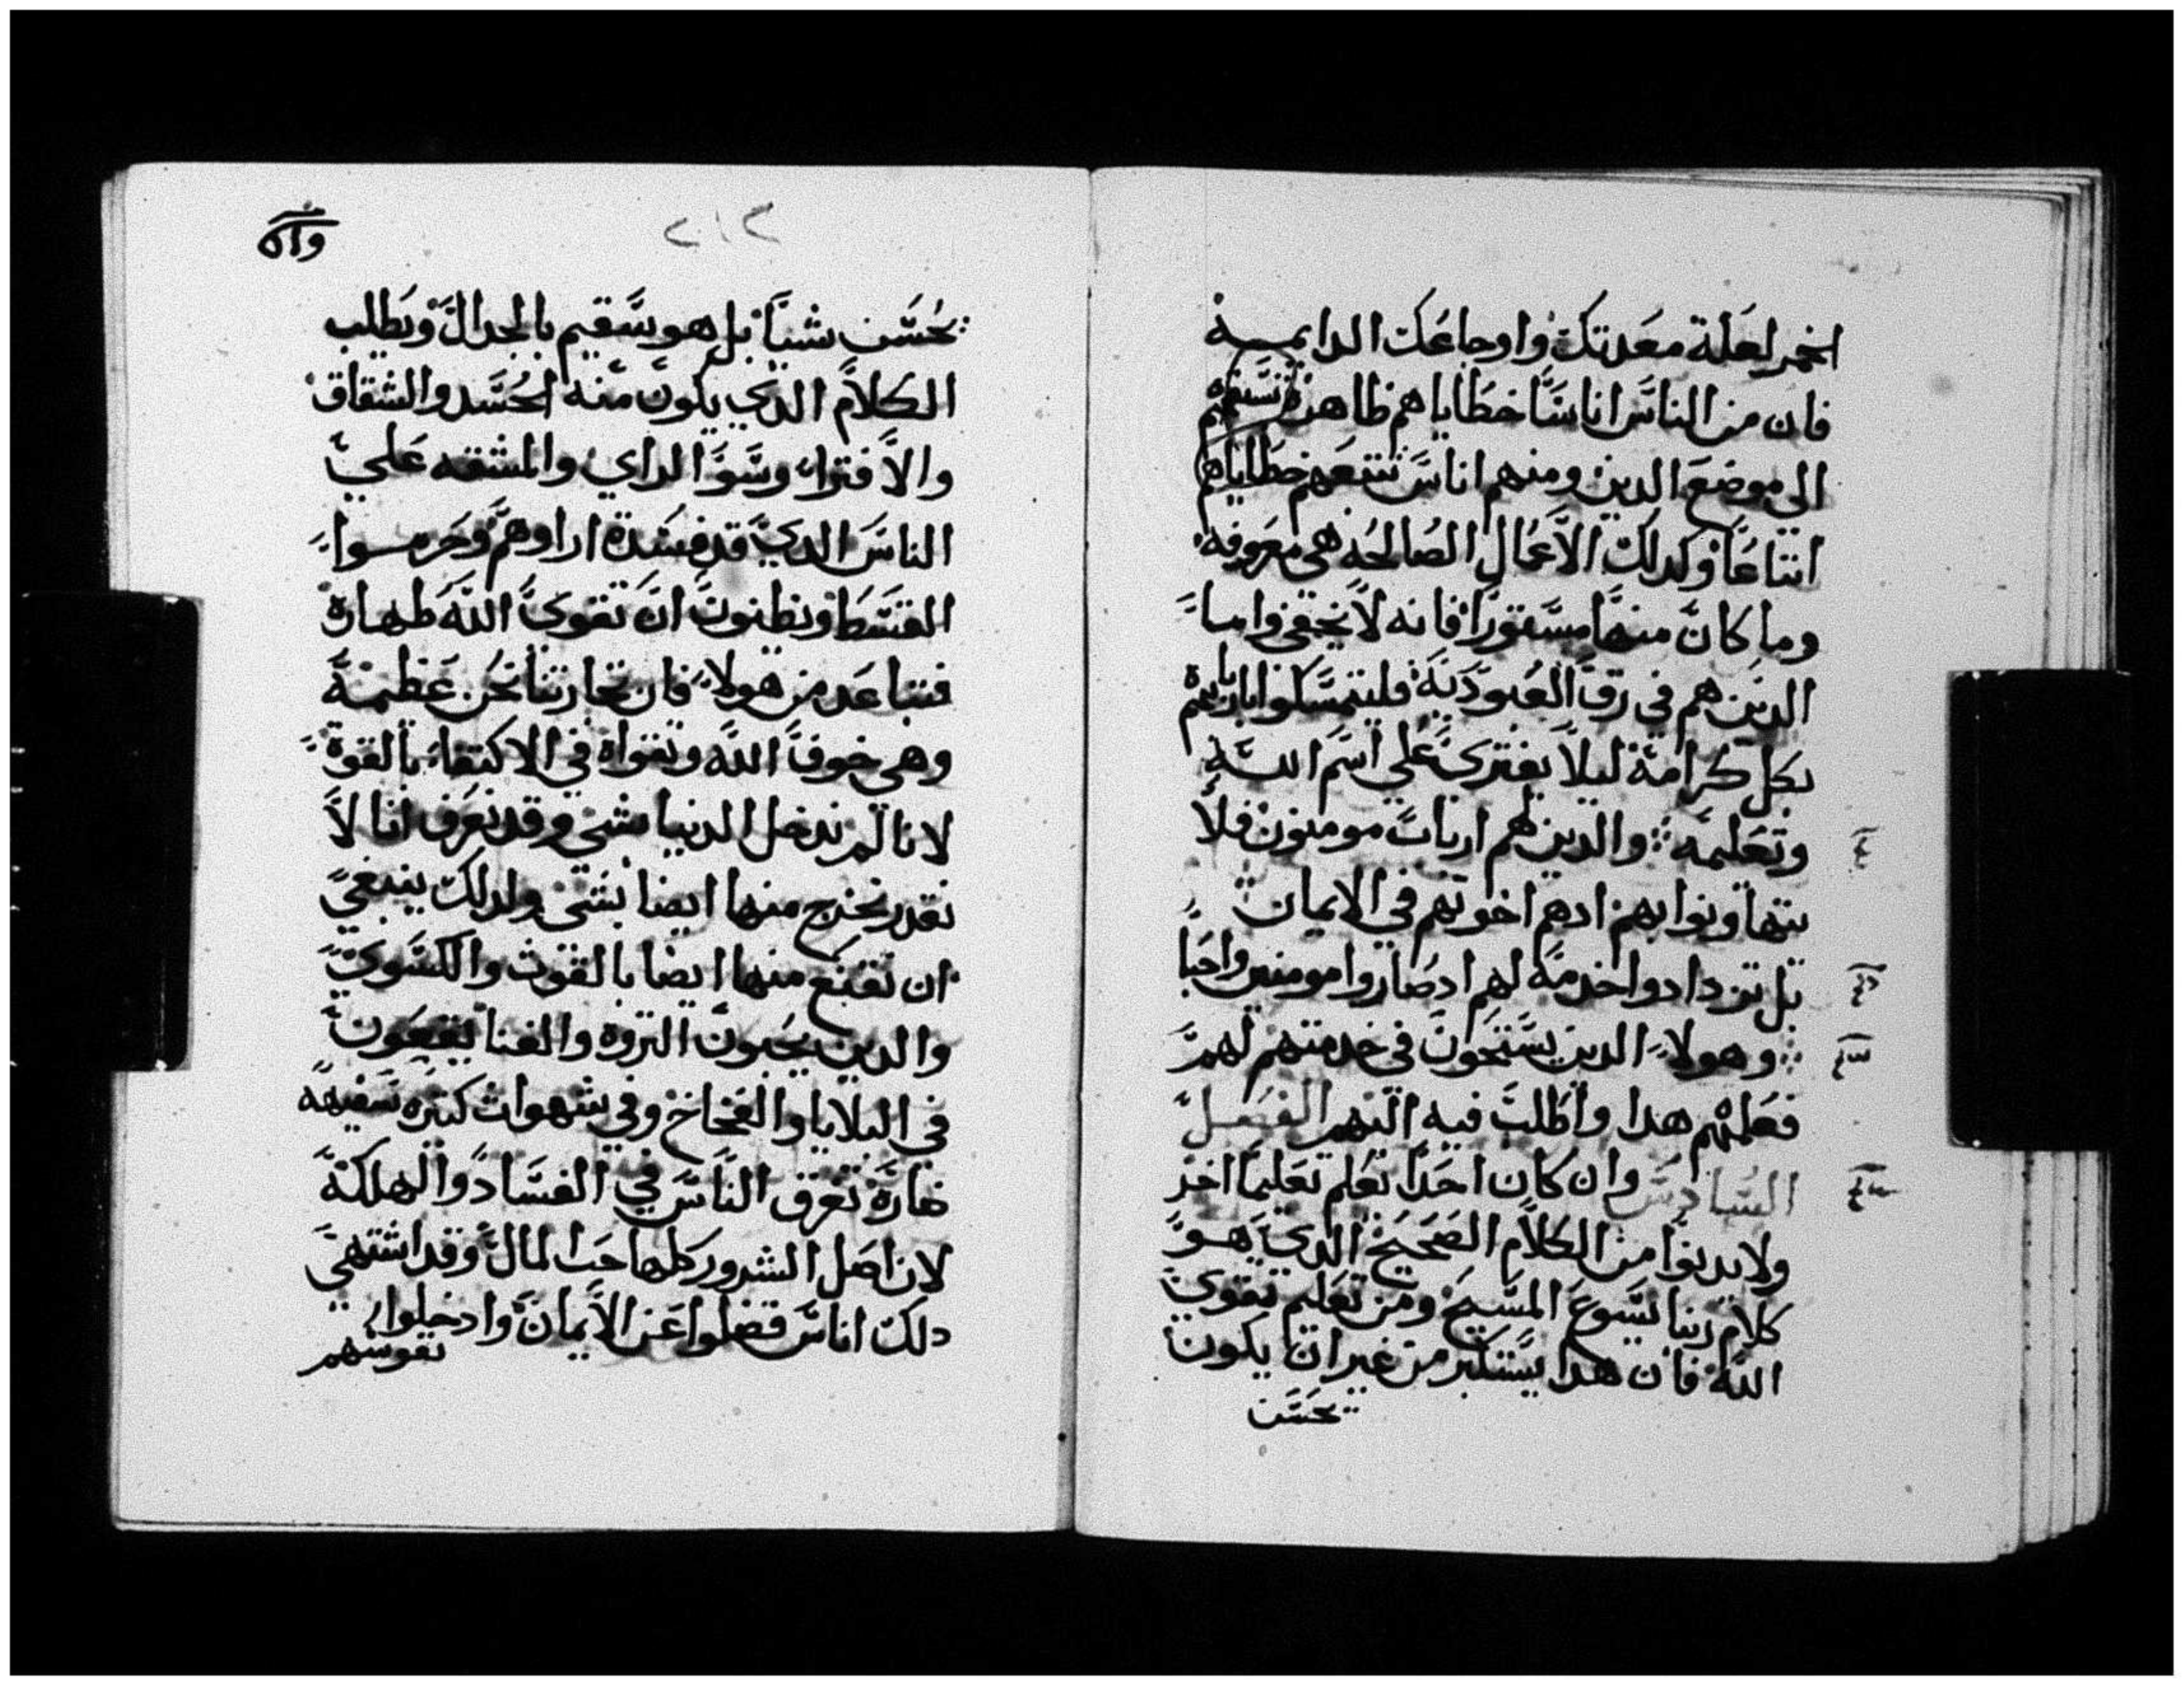 الخمر لعلة معدتك واوجاعك الدايمه
فان من الناس اناسًا خطاياهم ظاهرة تسبقهم
الي موضع الدين ومنهم اناس تتبعهم خطاياهم
اتباعًا وكدلك الاعمال الصالحه هي معروفه
وما كان منها مستورًا فانه لا يخفي واما
الدين هم في رق العبوديه فليتمسكوا باربابهم
بكل كرامة ليلا يفتري علي اسم الله
وتعليمه والدين لهم ارباب مومنون فلا
يتهاونوا بهم ادهم اخوتهم في الايمان
بل يزدادوا خدمة لهم ادصاروا مومنين واحبا
وهولاء الدين يستنحون في خدمتهم لهم
فعلمهم هدا واطلب فيه اليهم الفصل
السادس وان كان احدًا تعلم تعليمًا اخر
ولا يدنوا من الكلام الصحيح الدي هو
كلام ربنا يسوع المسيح ومن تعليم تقوي
الله فان هدا يستكبر من غير ان يكون
يحسن
٢١٢
يحسن شيا بل هو سقيم بالجدال ويطلب
الكلام الدي يكون منه الحسد والشقاق
والافتراء وسو الراي والمشقه علي
الناس الدي قد فسدة اراوهم وحرموا
القسط ويظنون ان تقوي الله طهارة
فتباعد من هولاء فان تجارتنا نحن عظيمة
وهي خوف الله وتقواه في الاكتفاء بالقوة
لانا لم ندخل الدنيا بشي وقد نعرف انا لا
نقدر نخرج منها ايضا بشي ولدلك ينبغي
ان نقنع منها ايضا بالقوت والكسوي
والدين يحبون التروه والغنا يقعون
في البلايا والفخاخ وفي شهوات كتيره سفيهه
ضارة تغرق الناس في الفساد والهلكة
لان اصل الشرور كلها حب المال وقد اشتهي
دلك اناس فضلوا عن الايمان وادخلوا
نفوسهم